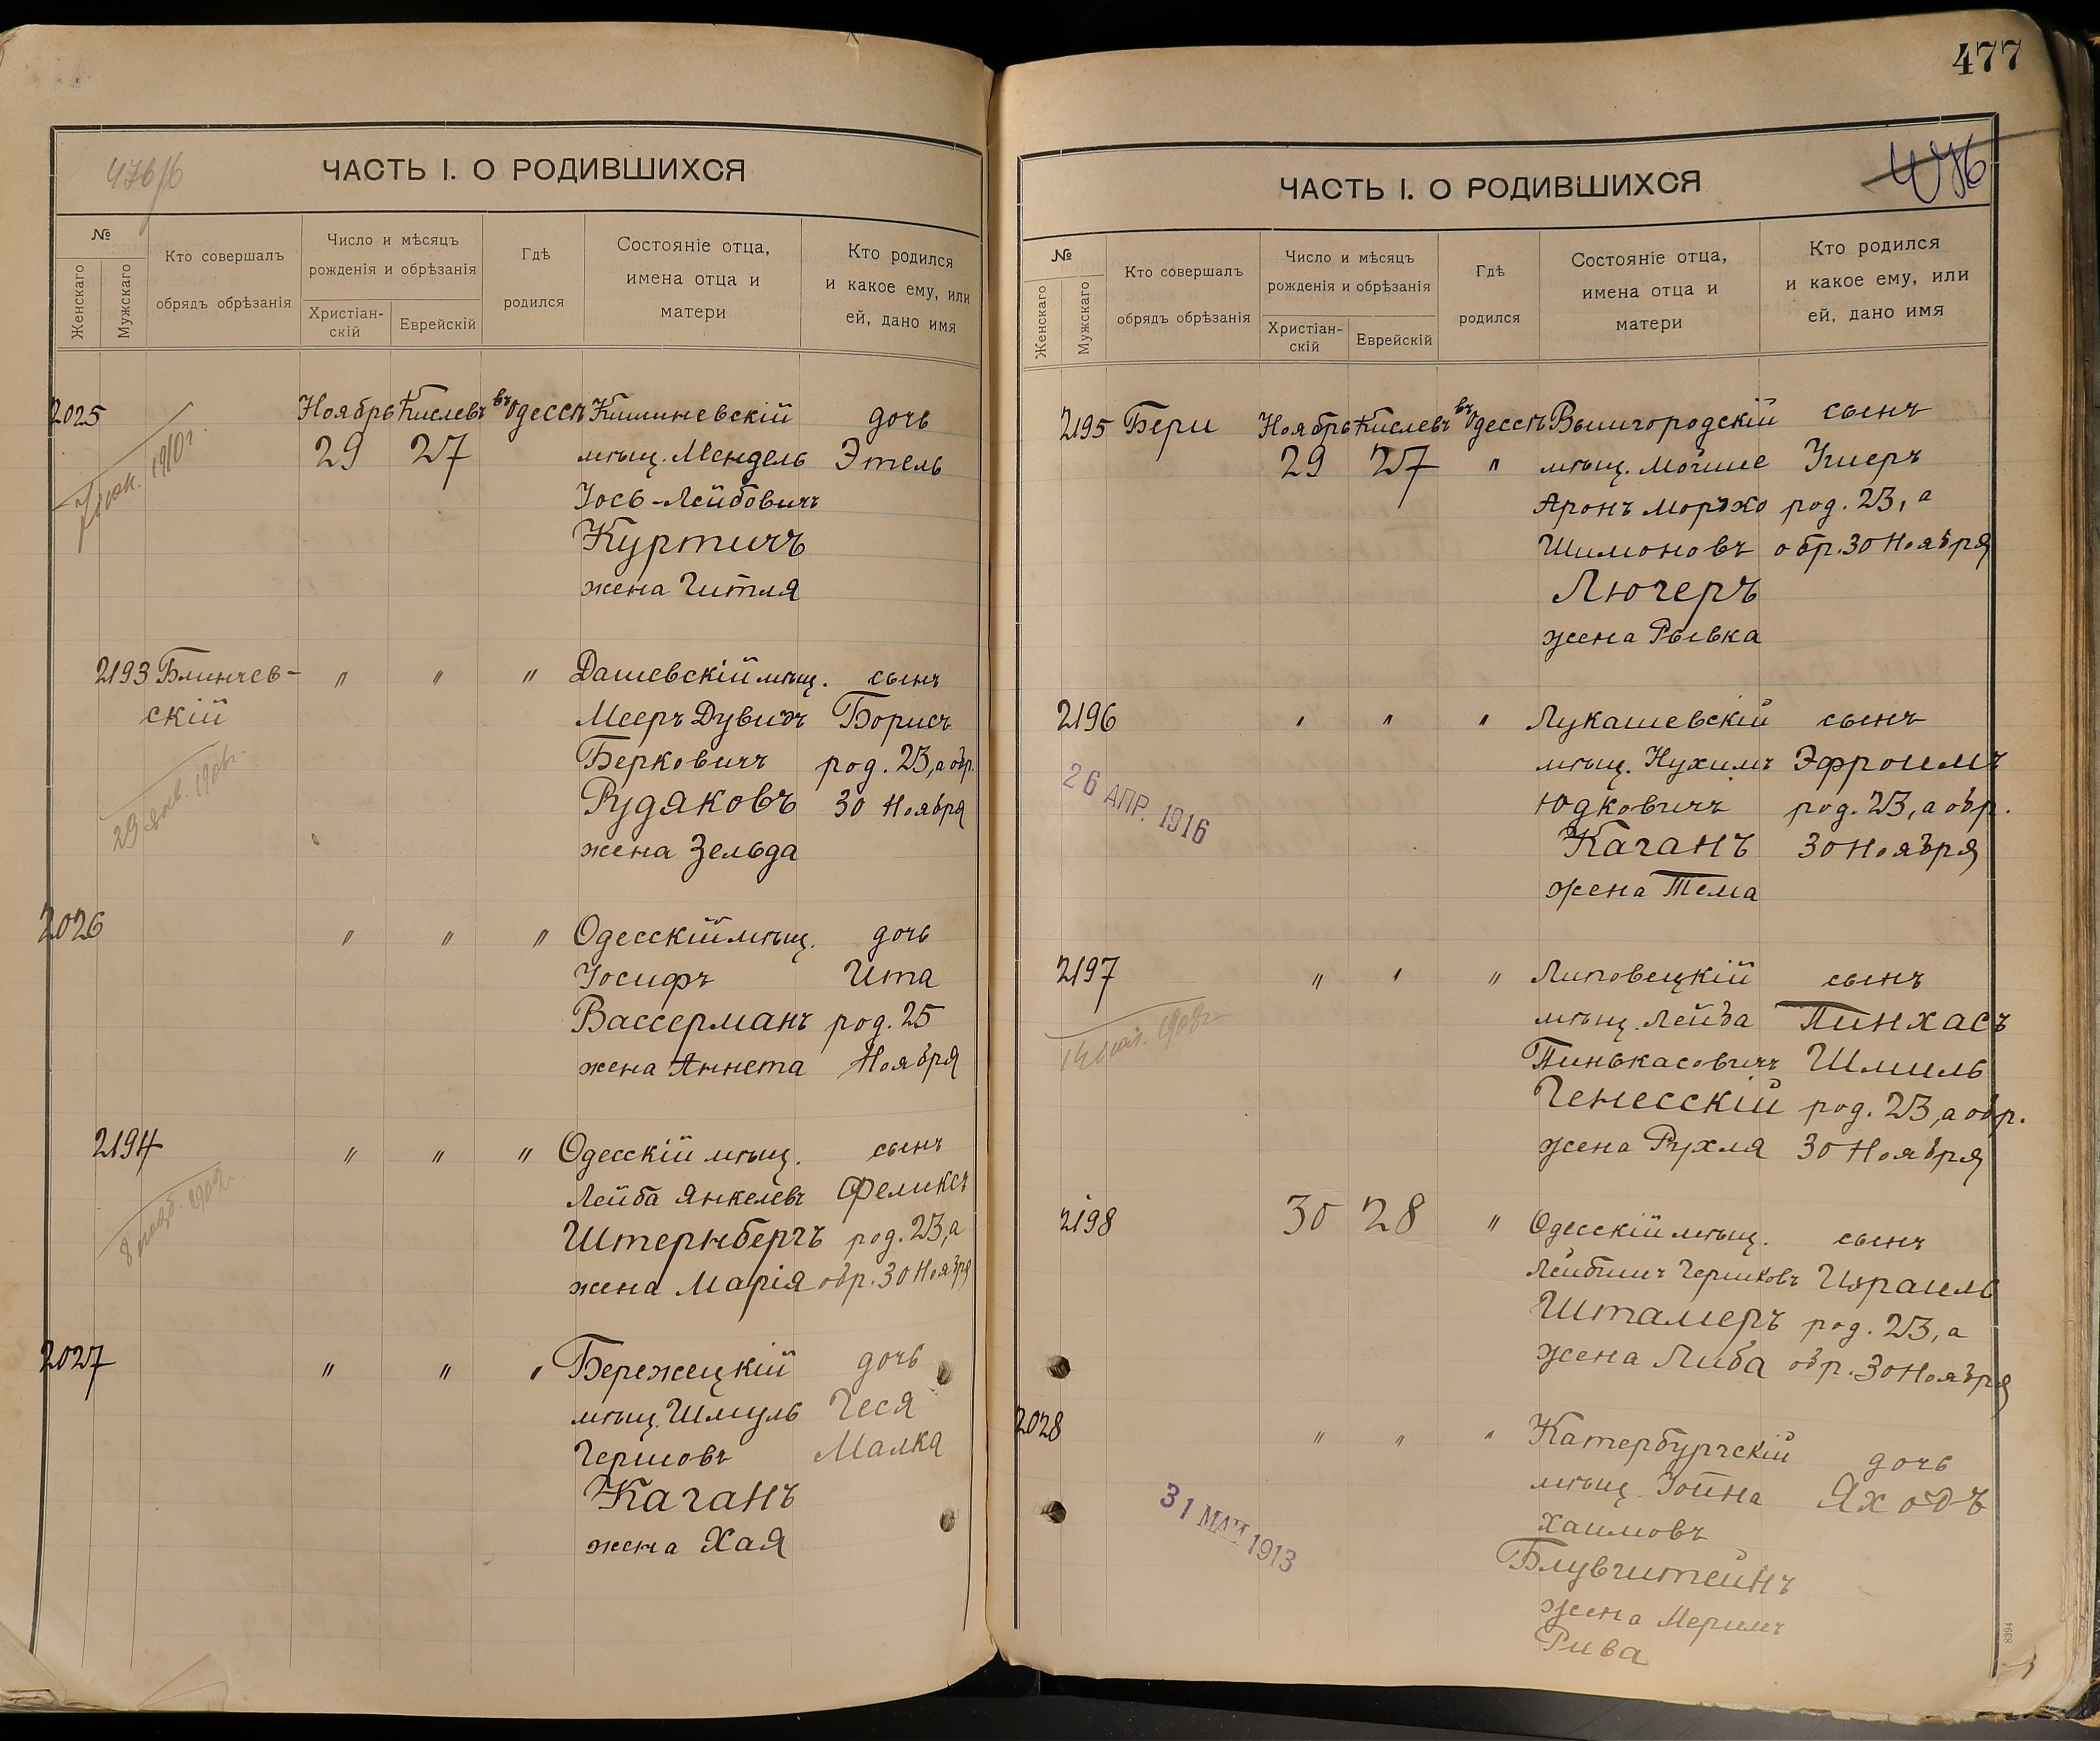 477
ЧАСТЬ I. О РОДИВШИХСЯ
№
Женскаго
Мужскаго
Кто совершалъ
обрядъ обрѣзанія
Число и мѣсяцъ
рожденія и обрѣзанія
Христіан-
скій
Еврейскій
Гдѣ
родился
Состояніе отца,
имена отца и
матери
Кто родился
и какое ему, или
ей, дано имя
2025 Ноябрь Кислевъ въ Одессѣ Кишиневскій дочь
29 27 мѣщ. Мендель Этель
Іось-Лейбовичъ
Куртичъ
жена Гитля
1910 г.
2193 Блинчев- " " " Дашевскій мѣщ. сынъ
скій Мееръ Дувидъ Борисъ
Берковичъ род. 23, а обр.
Рудяковъ 30 Ноября
жена Зельда
29 янв. 1908 г.
2026 " " " Одесскій мѣщ. дочь
Іосифъ Ита
Вассерманъ род. 25
жена Аннета Ноября
2194 " " " Одесскій мѣщ. сынъ
Лейба Янкелевъ Феликсъ
Штернбергъ род. 23, а
жена Марія обр. 30 Ноября
2027 " " " Бережецкій дочь
мѣщ. Шмуль Геся
Гершовъ Малка
Каганъ
жена Хая
ЧАСТЬ I. О РОДИВШИХСЯ
476
№
Женскаго
Мужскаго
Кто совершалъ
обрядъ обрѣзанія
Число и мѣсяцъ
рожденія и обрѣзанія
Христіан-
скій
Еврейскій
Гдѣ
родился
Состояніе отца,
имена отца и
матери
Кто родился
и какое ему, или
ей, дано имя
2195 Бери Ноябрь Кислевъ въ Одессѣ Вышгородскій сынъ
29 27 " мѣщ. Мошше Ушеръ
Аронъ Мордхо род. 23, а
Шимоновъ обр. 30 Ноября
Люгеръ
жена Рывка
2196 " " " Лукашевскій сынъ
мѣщ. Нухимъ Эфроимъ
Юдковичъ род. 23, а обр.
Каганъ 30 Ноября
жена Тема
26 АПР. 1916
2197 " " " Липовецкій сынъ
мѣщ. Лейба Пинхасъ
Пинькасовичъ Шмиль
Генесскій род. 23, а обр.
жена Рухля 30 Ноября
2198 30 28 " Одесскій мѣщ. сынъ
Лейбишъ Гершковъ Израиль
Шталеръ род. 23, а
жена Либа обр. 30 Ноября
2028 " " " Катербургскій дочь
мѣщ. Іойна Яходъ
Хаимовъ
Блувштейнъ
жена Меримъ
Рива
31 МАЙ 1913
8394